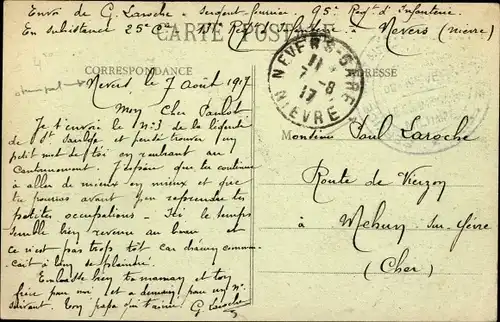 Envoi de G. Laroche - Sergent fourrier 95e Regt d'Infanterie
En subsistance 25e Cie 13e Reg d'Infanterie à Nevers (Nièvre)
CARTE POSTALE
CORRESPONDANCE
ADRESSE
NEVERS-GARE
11
7-8
17
NIEVRE
Nevers, le 7 Août 1917
Mon Cher Paulot
Je t'envoie le No 3 de la légende
de St Saulge et pense trouver un
petit mot de toi en rentrant au
Cantonnement. J'espère que tu continues
à aller de mieux en mieux et que
tu pourras avant peu reprendre tes
petites occupations - Ici le temps
semble bien revenu au beau et
ce n'est pas trop tôt car chacun commen-
çait à se plaindre.
Embrasse bien ta maman et ton
frère pour moi et à demain pour un No
suivant. Ton papa qui t'aime
G Laroche
Monsieur Paul Laroche
Route de Vierzon
à Mehun sur Yèvre
(Cher)